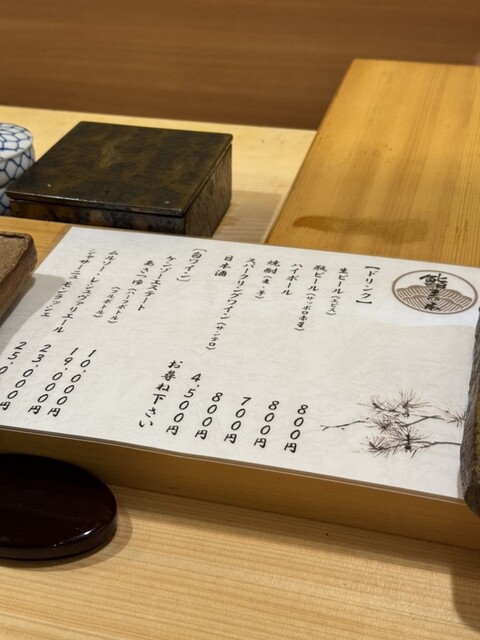 鮨
【ドリンク】
生ビール(ヱビス) 800円
瓶ビール(サッポロ赤星) 800円
ハイボール 700円
焼酎(麦・芋) 800円
スパークリングワイン(サンテロ) 4.500円
日本酒 お尋ね下さい
【白ワイン】
ケンゾーエステート
あさつゆ(ハーフボトル) 10.000円
(フルボトル) 19.000円
ムルソー・レ・シュヴァリエール 23.000円
シャサーニュ モンラッシェ 25.000円